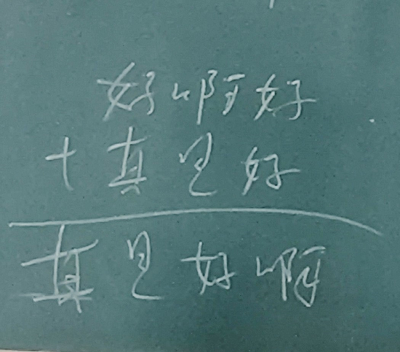 好啊好
+真是好
真是好啊